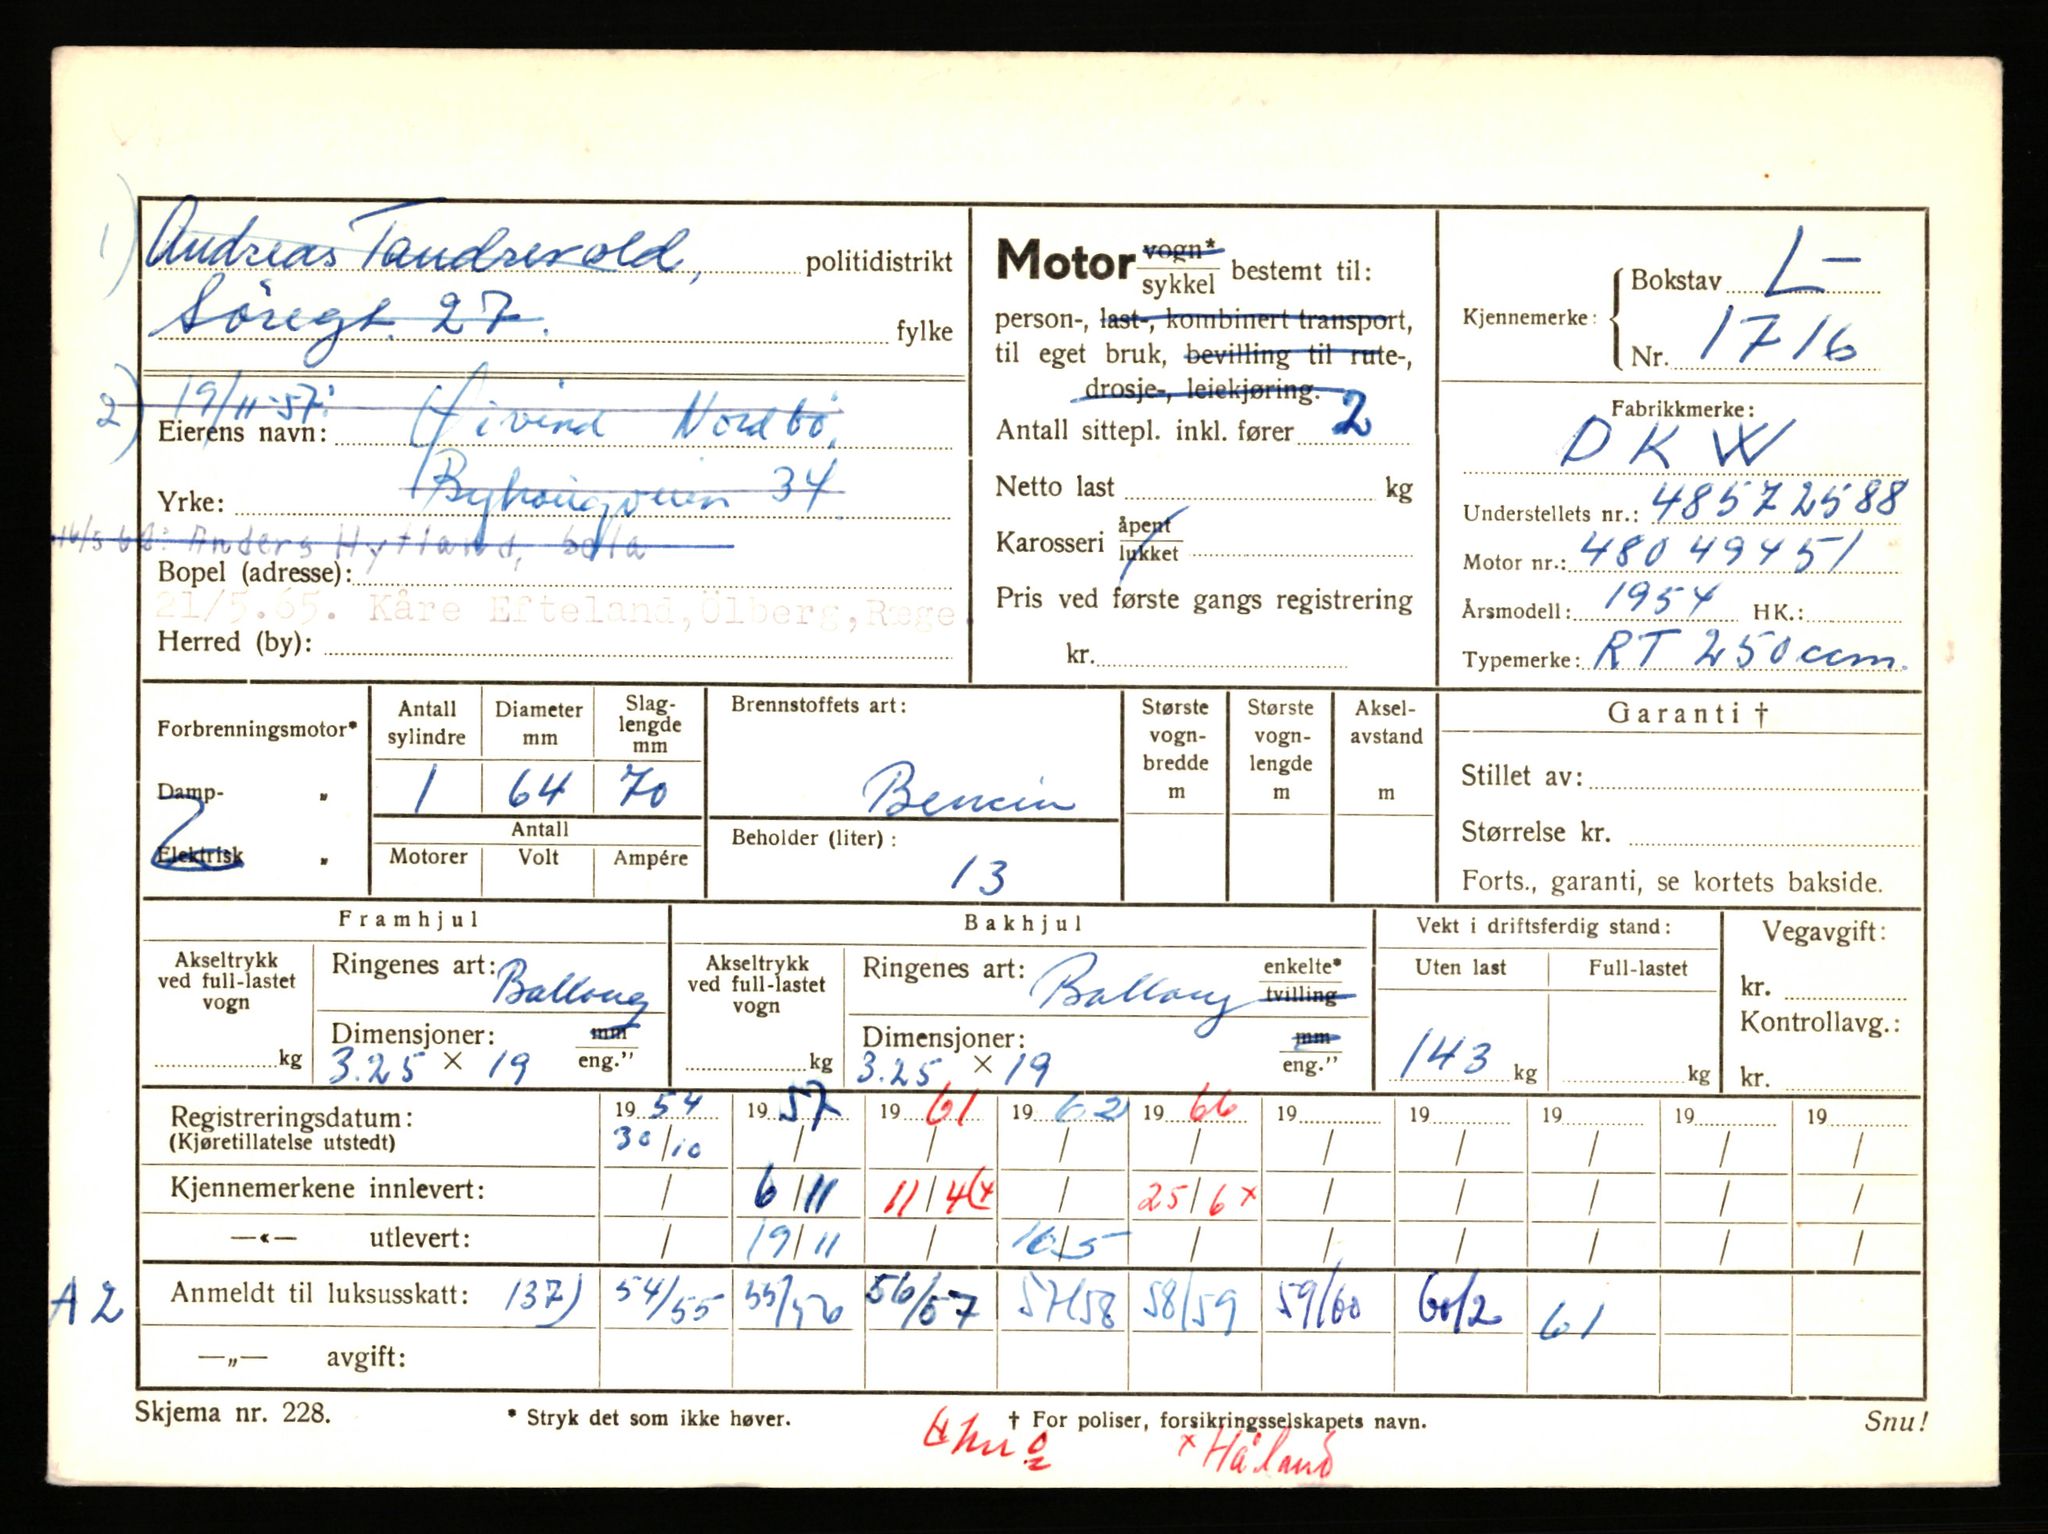 1) Andreas Tandrevold, politidistrikt
Söregt. 27. fylke
2) 19/11-57: Øivind Nordbö,
Eierens navn:
Byhaugveien 34
Yrke:
16/5 62: Anders Hytland, Sola
Bopel (adresse):
21/5.65. Kåre Efteland, Ölberg, Ræge.
Herred (by):
Motor vogn* / sykkel bestemt til:
person-, last-, kombinert transport,
til eget bruk, bevilling til rute-,
drosje-, leiekjøring.
Antall sittepl. inkl. fører 2
Netto last kg
Karosseri åpent / lukket
Pris ved første gangs registrering
kr.
Kjennemerke: Bokstav L-
Nr. 1716
Fabrikkmerke:
DKW
Understellets nr.: 48572588
Motor nr.: 48049451
Årsmodell: 1954 HK.:
Typemerke: RT 250 ccm.
Forbrenningsmotor*
Damp- „
Elektrisk „
Antall sylindre Diameter mm Slag-lengde mm
1 64 70
Antall
Motorer Volt Ampére
Brennstoffets art:
Bensin
Beholder (liter):
13
Største vogn-bredde m
Største vogn-lengde m
Aksel-avstand m
Garanti †
Stillet av:
Størrelse kr.
Forts., garanti, se kortets bakside.
Framhjul
Akseltrykk ved full-lastet vogn
kg
Ringenes art: Ballong
Dimensjoner: mm / eng.”
3.25 × 19
Bakhjul
Akseltrykk ved full-lastet vogn
kg
Ringenes art: Ballong enkelte* / tvilling
Dimensjoner: mm / eng.”
3.25 × 19
Vekt i driftsferdig stand:
Uten last Full-lastet
143 kg kg
Vegavgift:
kr.
Kontrollavg.:
kr.
Registreringsdatum: 19 54 19 57 19 61 19 62 19 66 19 19 19 19 19
(Kjøretillatelse utstedt) 30/10 / / / / / / / / /
Kjennemerkene innlevert: / 6/11 11/4 / 25/6 x / / / / /
—«— utlevert: / 19/11 / 16/5 / / / / / /
A2 Anmeldt til luksusskatt: 137) 54/55 55/56 56/57 57/58 58/59 59/60 60/2 61
—„— avgift:
Skjema nr. 228. * Stryk det som ikke høver. † For poliser, forsikringsselskapets navn. Snu!
x Håland